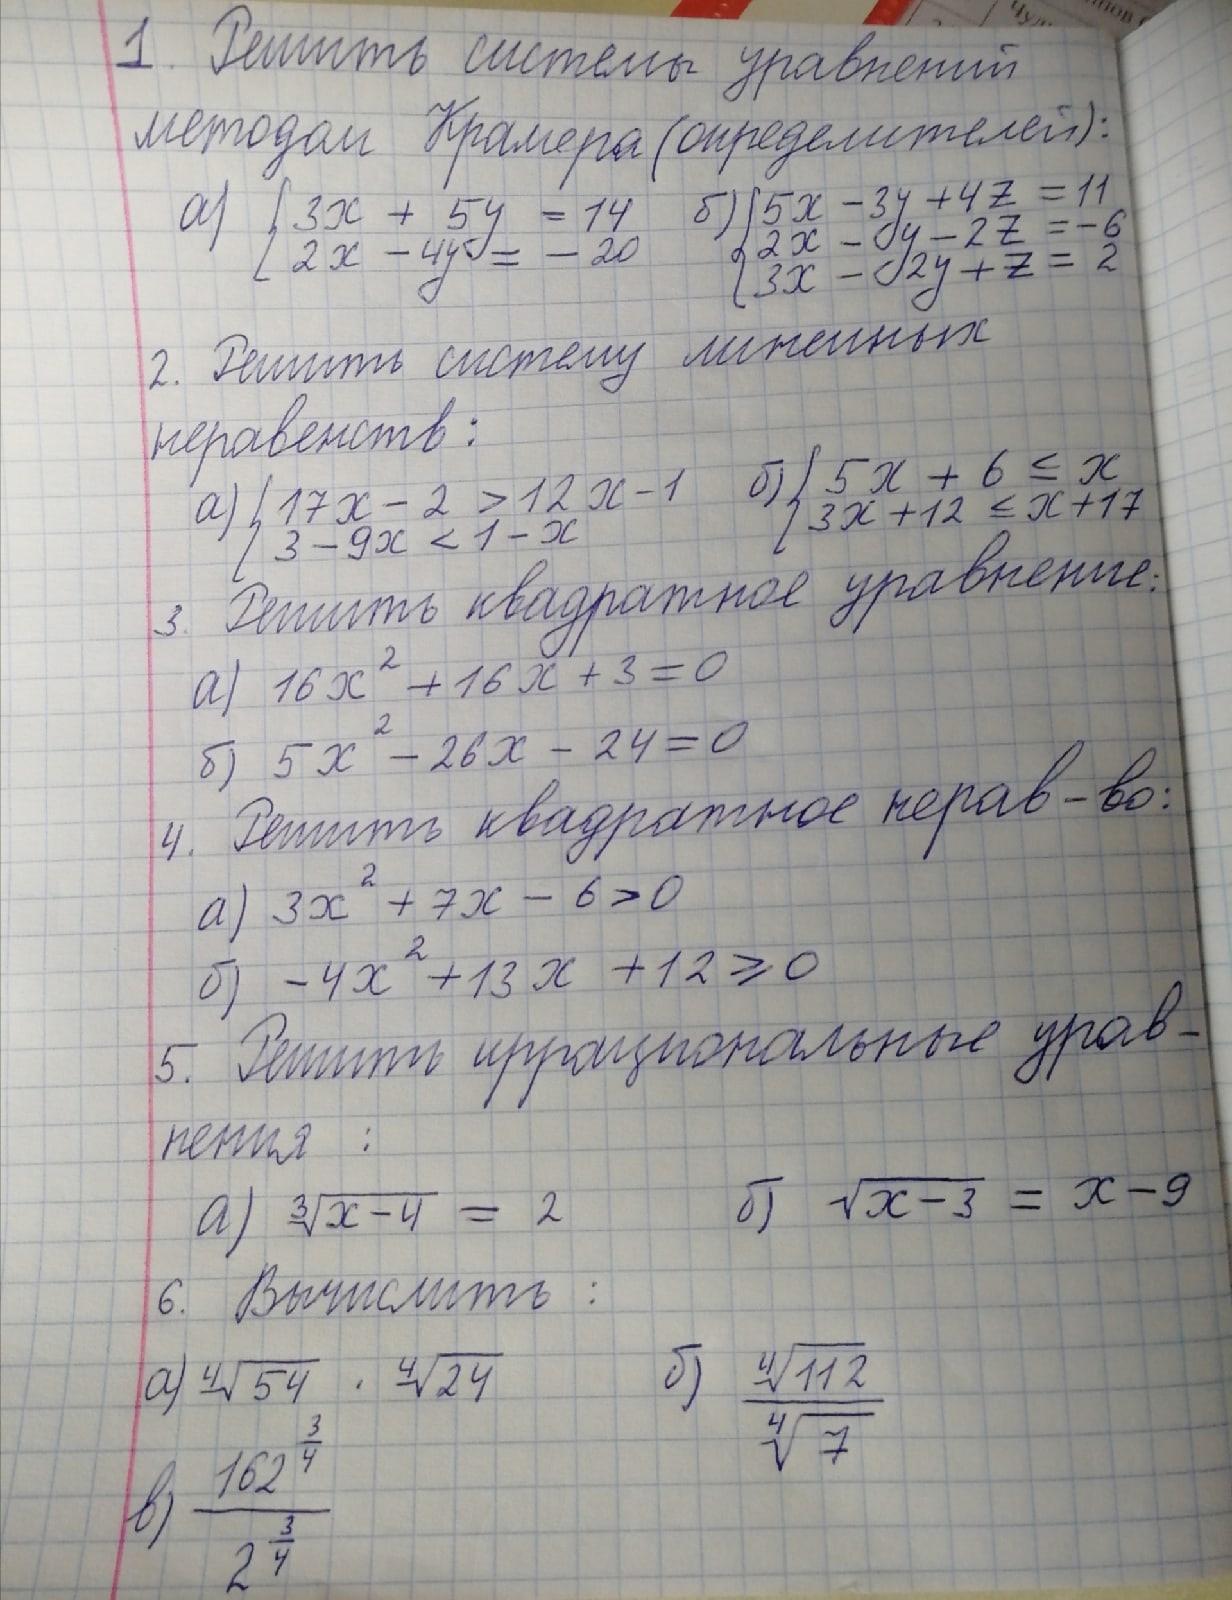 1. Решить системы уравнений
методом Крамера (определителей):
а) { 3x + 5y = 14 б) { 5x - 3y + 4z = 11
2x - 4y = - 20 2x - y - 2z = -6
3x - 2y + z = 2
2. Решить систему линейных
неравенств:
а) { 17x - 2 > 12x - 1 б) { 5x + 6 ≤ x
3 - 9x < 1 - x 3x + 12 ≤ x + 17
3. Решить квадратное уравнение:
а) 16x² + 16x + 3 = 0
б) 5x² - 26x - 24 = 0
4. Решить квадратное нерав-во:
а) 3x² + 7x - 6 > 0
б) -4x² + 13x + 12 ≥ 0
5. Решить иррациональные урав-
нения :
а) ∛(x-4) = 2 б) √(x-3) = x - 9
6. Вычислить :
а) ∜54 · ∜24 б) ∜112 / ∜7
в) 162^(3/4) / 2^(3/4)